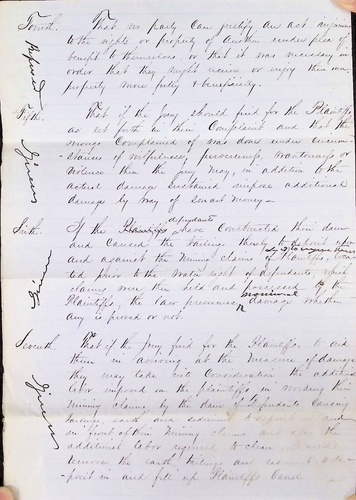 Fourth. That no party can justify an act injurious
to the rights or property of another under plea of
benefit to themselves or that it was necessary in
order that they might secure or enjoy their own
property more fully & beneficially.
Refused
Fifth. That if the Jury should find for the Plaintiffs
as set forth in their Complaint and that the
wrongs Complained of was done under circum-
stances of wilfulness, perverseness, wantonness or
violence then the jury may, in addition to the
actual damage sustained impose additional
damage by way of smart money—
Given
Sixth. If the Plaintiffs defendants have constructed their dam
and caused the tailings thereby to deposit upon
and against the mining claims of Plaintiffs, loca-
ted prior to the water right of defendants, which
claims were then held and possessed by the
Plaintiffs, the law presumes nominal damage whether
any is proved or not.
Given
Seventh. That if the Jury find for the Plaintiffs, to aid
them in arriving at the measure of damage
they may take into consideration the additional
labor imposed on the plaintiffs in working their
mining claims, by the dam of defendants causing
tailings, earth and sediment to
in front of their mining claims and also the
additional labor required to clean
the earth tailings and sediment
posit in and fill up Plaintiffs Canal
Given